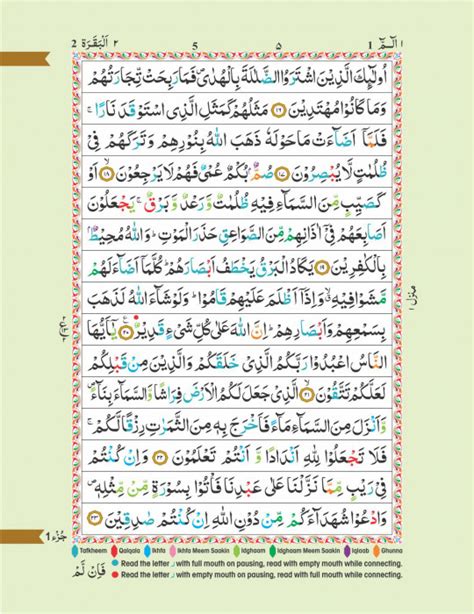 ٢ اَلْبَقَرَة 2 5 ٥ ا الٓـمّٓ 1
اُولٰٓئِكَ الَّذِيْنَ اشْتَرَوُا الضَّلٰلَةَ بِالْهُدٰى۪ فَمَا رَبِحَتْ تِّجَارَتُهُمْ
وَمَا كَانُوْا مُهْتَدِيْنَ ١٦ مَثَلُهُمْ كَمَثَلِ الَّذِى اسْتَوْقَدَ نَارًا ۚ
فَلَمَّآ اَضَآءَتْ مَا حَوْلَهٗ ذَهَبَ اللّٰهُ بِنُوْرِهِمْ وَتَرَكَهُمْ فِىْ
ظُلُمٰتٍ لَّا يُبْصِرُوْنَ ١٧ صُمٌّۢ بُكْمٌ عُمْىٌ فَهُمْ لَا يَرْجِعُوْنَ ۙ ١٨ اَوْ
كَصَيِّبٍ مِّنَ السَّمَآءِ فِيْهِ ظُلُمٰتٌ وَّرَعْدٌ وَّبَرْقٌ ۚ يَجْعَلُوْنَ
اَصَابِعَهُمْ فِىْٓ اٰذَانِهِمْ مِّنَ الصَّوَاعِقِ حَذَرَ الْمَوْتِ ؕ وَاللّٰهُ مُحِيْطٌۢ
بِالْكٰفِرِيْنَ ١٩ يَكَادُ الْبَرْقُ يَخْطَفُ اَبْصَارَهُمْ ؕ كُلَّمَآ اَضَآءَ لَهُمْ
مَّشَوْا فِيْهِ ۙ وَاِذَآ اَظْلَمَ عَلَيْهِمْ قَامُوْا ؕ وَلَوْ شَآءَ اللّٰهُ لَذَهَبَ
بِسَمْعِهِمْ وَاَبْصَارِهِمْ ؕ اِنَّ اللّٰهَ عَلٰى كُلِّ شَىْءٍ قَدِيْرٌ ٢٠ يٰٓاَيُّهَا
النَّاسُ اعْبُدُوْا رَبَّكُمُ الَّذِىْ خَلَقَكُمْ وَالَّذِيْنَ مِنْ قَبْلِكُمْ
لَعَلَّكُمْ تَتَّقُوْنَ ۙ ٢١ الَّذِىْ جَعَلَ لَكُمُ الْاَرْضَ فِرَاشًا وَّالسَّمَآءَ بِنَآءً ۪
وَّاَنْزَلَ مِنَ السَّمَآءِ مَآءً فَاَخْرَجَ بِهٖ مِنَ الثَّمَرٰتِ رِزْقًا لَّكُمْ ۚ
فَلَا تَجْعَلُوْا لِلّٰهِ اَنْدَادًا وَّاَنْتُمْ تَعْلَمُوْنَ ٢٢ وَاِنْ كُنْتُمْ
فِىْ رَيْبٍ مِّمَّا نَزَّلْنَا عَلٰى عَبْدِنَا فَاْتُوْا بِسُوْرَةٍ مِّنْ مِّثْلِهٖ ۪
وَادْعُوْا شُهَدَآءَكُمْ مِّنْ دُوْنِ اللّٰهِ اِنْ كُنْتُمْ صٰدِقِيْنَ ٢٣
منزل ١
جُزْء 1
Tafkheem Qalqala Ikhfa Ikhfa Meem Saakin Idghaam Idghaam Meem Saakin Iqlaab Ghunna
Read the letter ر with full mouth on pausing, read with empty mouth while connecting.
Read the letter ر with empty mouth on pausing, read with full mouth while connecting.
فَاِنْ لَّمْ